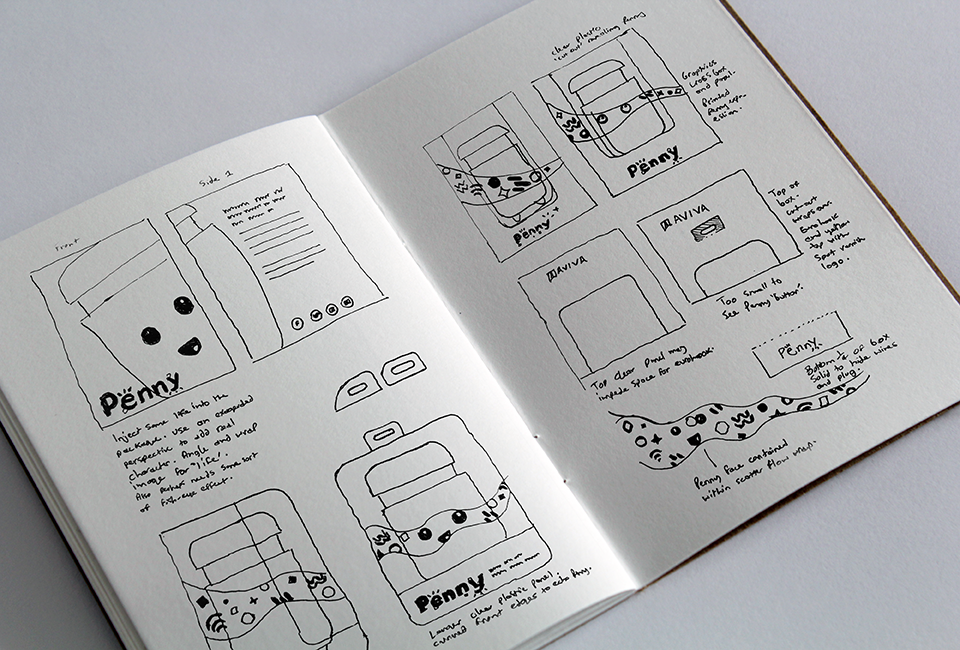 Front
Side 1
Penny
Inject some life into the
package. Use an exaggerated
perspective to add real
character. Angle and wrap
image for "life".
Also perhaps needs some sort
of fish-eye effect.
Penny
Larger clear plastic panel.
curved front edges to echo Penny.
clear plastic
'cut out' revealing Penny
Graphics
cross box
and panel.
Printed
Penny expr-
ession.
Penny
Penny
AVIVA
AVIVA
Top of
box -
cut-out
wraps over
Eurohook
and yellow
top with
spot varnish
logo.
Too small to
see Penny 'button'.
Top clear panel may
impede space for eurohook.
Penny
Bottom ¼ of box
Solid to hide wires
and plug.
Penny face contained
within scatter flow map.